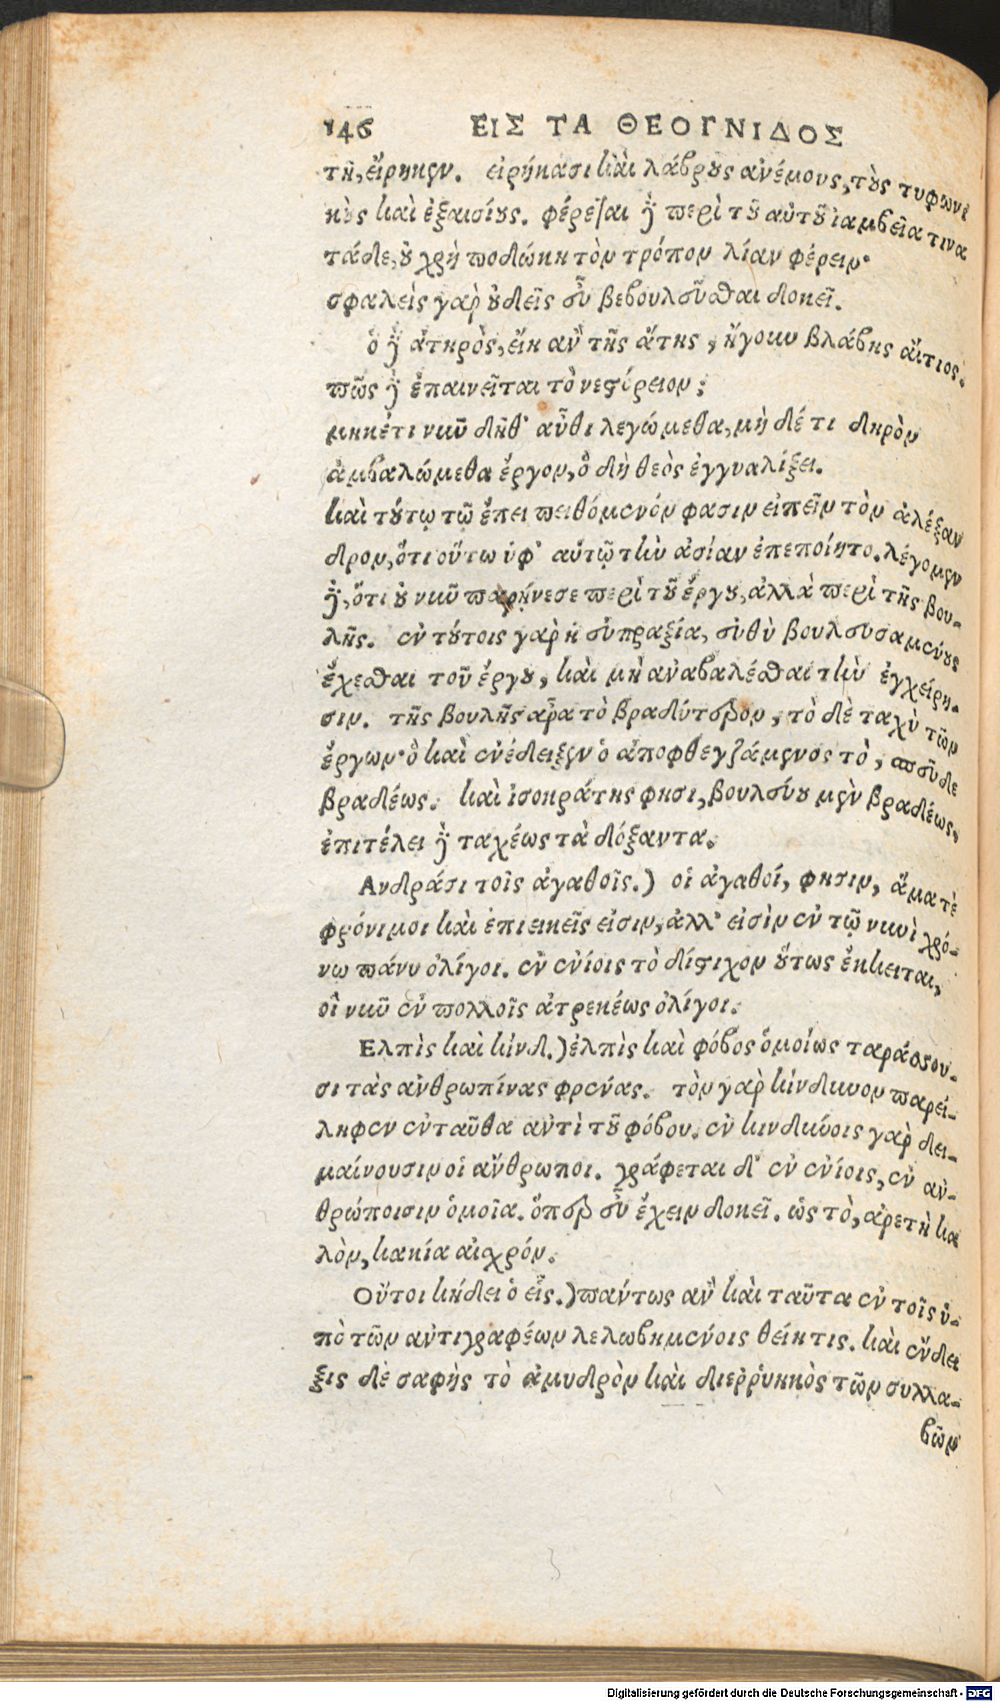 146 ΕΙΣ ΤΑ ΘΕΟΓΝΙΔΟΣ
τῆ, εἴρηκεν. εἰρήκασι καὶ λάβρους ἀνέμους, τοὺς τυφωνι
κοὺς καὶ ἐξαισίους. φέρεται δὲ περὶ τοῦ αὐτοῦ ἰαμβεῖα τινα
τάδε, οὐ χρὴ ποδώκη τὸν τρόπον λίαν φέρειν·
σφαλεὶς γὰρ οὐδεὶς εὖ βεβουλεῦσθαι δοκεῖ.
ὁ δὲ ἀτηρὸς, εἴη ἂν τῆς ἄτης, ἤγουν βλάβης αἴτιος.
πῶς δὲ ἐπαινεῖται τὸ νεστόρειον;
μηκέτι νῦν δῆθ' αὖθι λεγώμεθα, μὴ δέ τι δηρὸν
ἀμβαλώμεθα ἔργον, ὃ δὴ θεὸς ἐγγυαλίξει.
καὶ τούτῳ τῷ ἔπει πειθόμενόν φασιν εἰπεῖν τὸν ἀλέξαν
δρον, ὅτι οὕτω ὑφ' αὑτῷ τὴν ἀσίαν ἐπεποίητο. λέγομεν
δὲ, ὅτι οὐ νῦν παρῄνεσε περὶ τοῦ ἔργου, ἀλλὰ περὶ τῆς βου-
λῆς. ἐν τούτοις γὰρ ἡ εὐπραξία, εὐθὺ βουλευσαμένους
ἔχεσθαι τοῦ ἔργου, καὶ μὴ ἀναβαλέσθαι τὴν ἐγχείρη-
σιν. τῆς βουλῆς ἄρα τὸ βραδύτερον, τὸ δὲ ταχὺ τῶν
ἔργων· ὃ καὶ ἐνέδειξεν ὁ ἀποφθεγξάμενος τὸ, σπεῦδε
βραδέως. καὶ ἰσοκράτης φησι, βουλεύου μὲν βραδέως,
ἐπιτέλει δὲ ταχέως τὰ δόξαντα.
Ανδράσι τοῖς ἀγαθοῖς.) οἱ ἀγαθοί, φησιν, ἅμα τὲ
φρόνιμοι καὶ ἐπιεικεῖς εἰσιν, ἀλλ' εἰσὶν ἐν τῷ νυνὶ χρό-
νω πάνυ ὀλίγοι. ἐν ἐνίοις τὸ δίστιχον οὕτως ἔκκειται,
οἳ νῦν ἐν πολλοῖς ἀτρεκέως ὀλίγοι.
Ελπὶς καὶ κίνδ.) ἐλπὶς καὶ φόβος ὁμοίως ταράσσου-
σι τὰς ἀνθρωπίνας φρένας. τὸν γὰρ κίνδυνον παρεί-
ληφεν ἐνταῦθα ἀντὶ τοῦ φόβου. ἐν κινδύνοις γὰρ δει-
μαίνουσιν οἱ ἄνθρωποι. γράφεται δ' ἐν ἐνίοις, ἐν ἀν-
θρώποισιν ὁμοῖα. ὅπερ εὖ ἔχειν δοκεῖ. ὡς τὸ, ἀρετὴ κα
λὸν, κακία αἰχρόν.
Οὔτοι κήδει ὁ εἷς.) πάντως ἂν καὶ ταῦτα ἐν τοῖς ὑ-
πὸ τῶν ἀντιγραφέων λελωβημένοις θείη τις. καὶ ἔνδει
ξις δὲ σαφὴς τὸ ἀμυδρὸν καὶ διερρυηκὸς τῶν συλλα-
βῶν
Digitalisierung gefördert durch die Deutsche Forschungsgemeinschaft - DFG